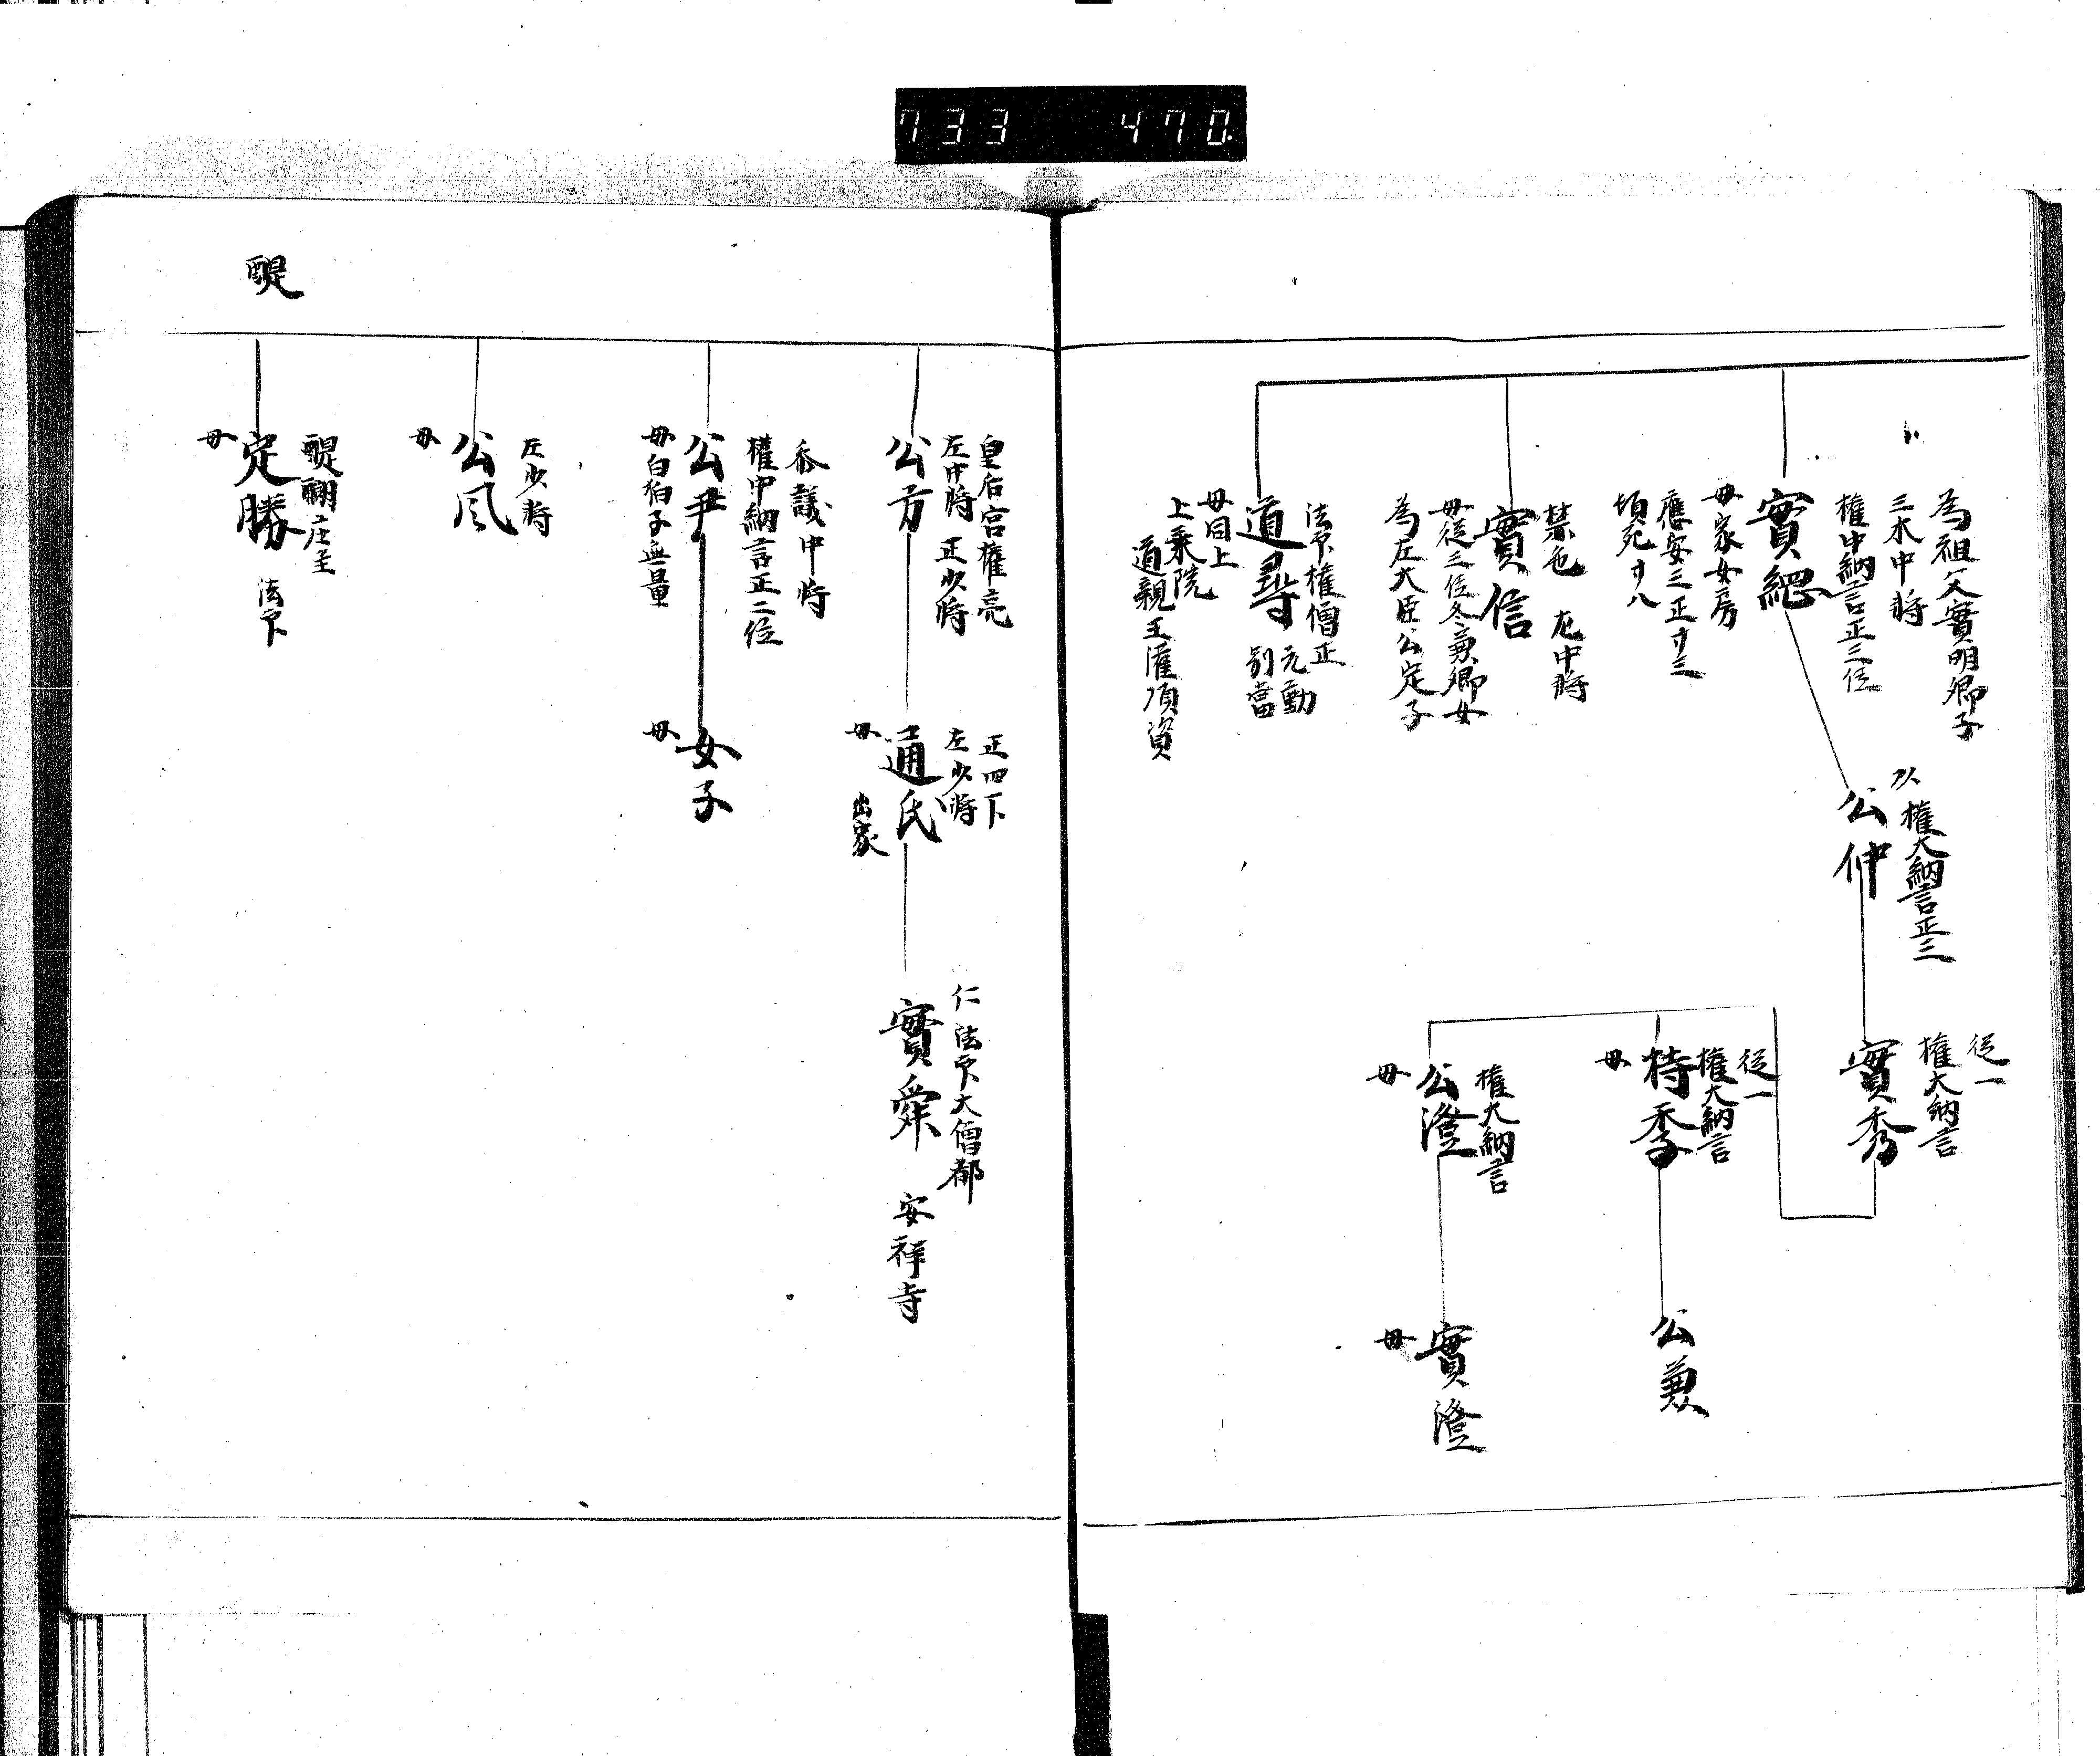 733 470
為祖父實明卿子
三木中将
權中納言正三位
實綱
母家女房
應安三正廿三
頓死廿八
權大納言正二
公仲
從一
權大納言
實秀
從一
權大納言
持季
母
公兼
權大納言
公澄
母
實澄
母
禁色 左中将
實信
母從三位冬兼卿女
為左大臣公定子
法印權僧正
道尋
別當
母同上
上乗院
道親王灌頂資
皇后宮權亮
左中将 正少将
公方
正四下
左少将
通氏
母
出家
仁 法印大僧都
實舜 安祥寺
参議中将
權中納言正二位
公尹
母白拍子無量
女子
母
左少将
公風
母
醍
定勝 法印
母